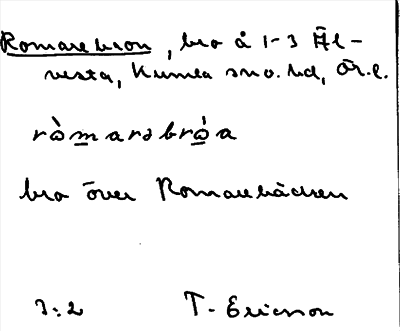 Romarebron, bro å 1-3 Äl-
vesta, Kumla sno. hd, Ör. l.
rò̀marəbróa
bro över Romarebäcken
3:2 T. Ericson